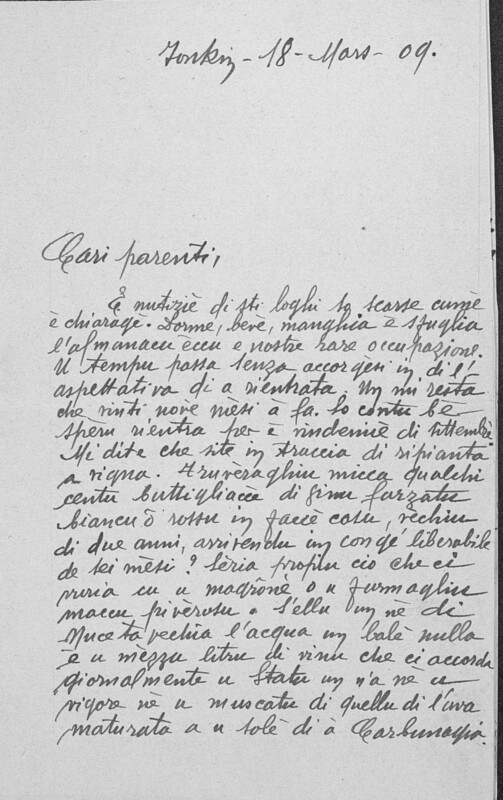 Tonkin - 18 - Mars - 09.
Cari parenti,
E nutiziè di sti loghi so scarse cumè
è chiaragè. Dorme, bevè, manghia è sfuglia
l'almanaccu èccu e nostre rare occupazione.
U tempu passa senza accorgèsi in di l'
aspettativa di a rientrata. Un mi resta
che vinti novè mèsi à fa. So contu bè
spèru rientra per è vindemiè di sittembre.
Mi dite che site in traccia di ripianta
a vigna. Truveraghiu micca qualchi
centu buttigliacce di finu furzatu
biancu ò rossu in faccè casu, vechiu
di due anni, arrivendu in congé liberabile
de sei mèsi? Sèria propiu cio che ci
vuria cu u magrònè o u furmagliu
maccu pivèrosu. S'ellu un nè di
Nuceta vechia l'acqua un balè nulla
è u mèzzu litru di vinu che ci accorda
giornalmente u Statu un n'a nè u
vigore nè u muscatu di quellu di l'uva
maturata a u solè di à